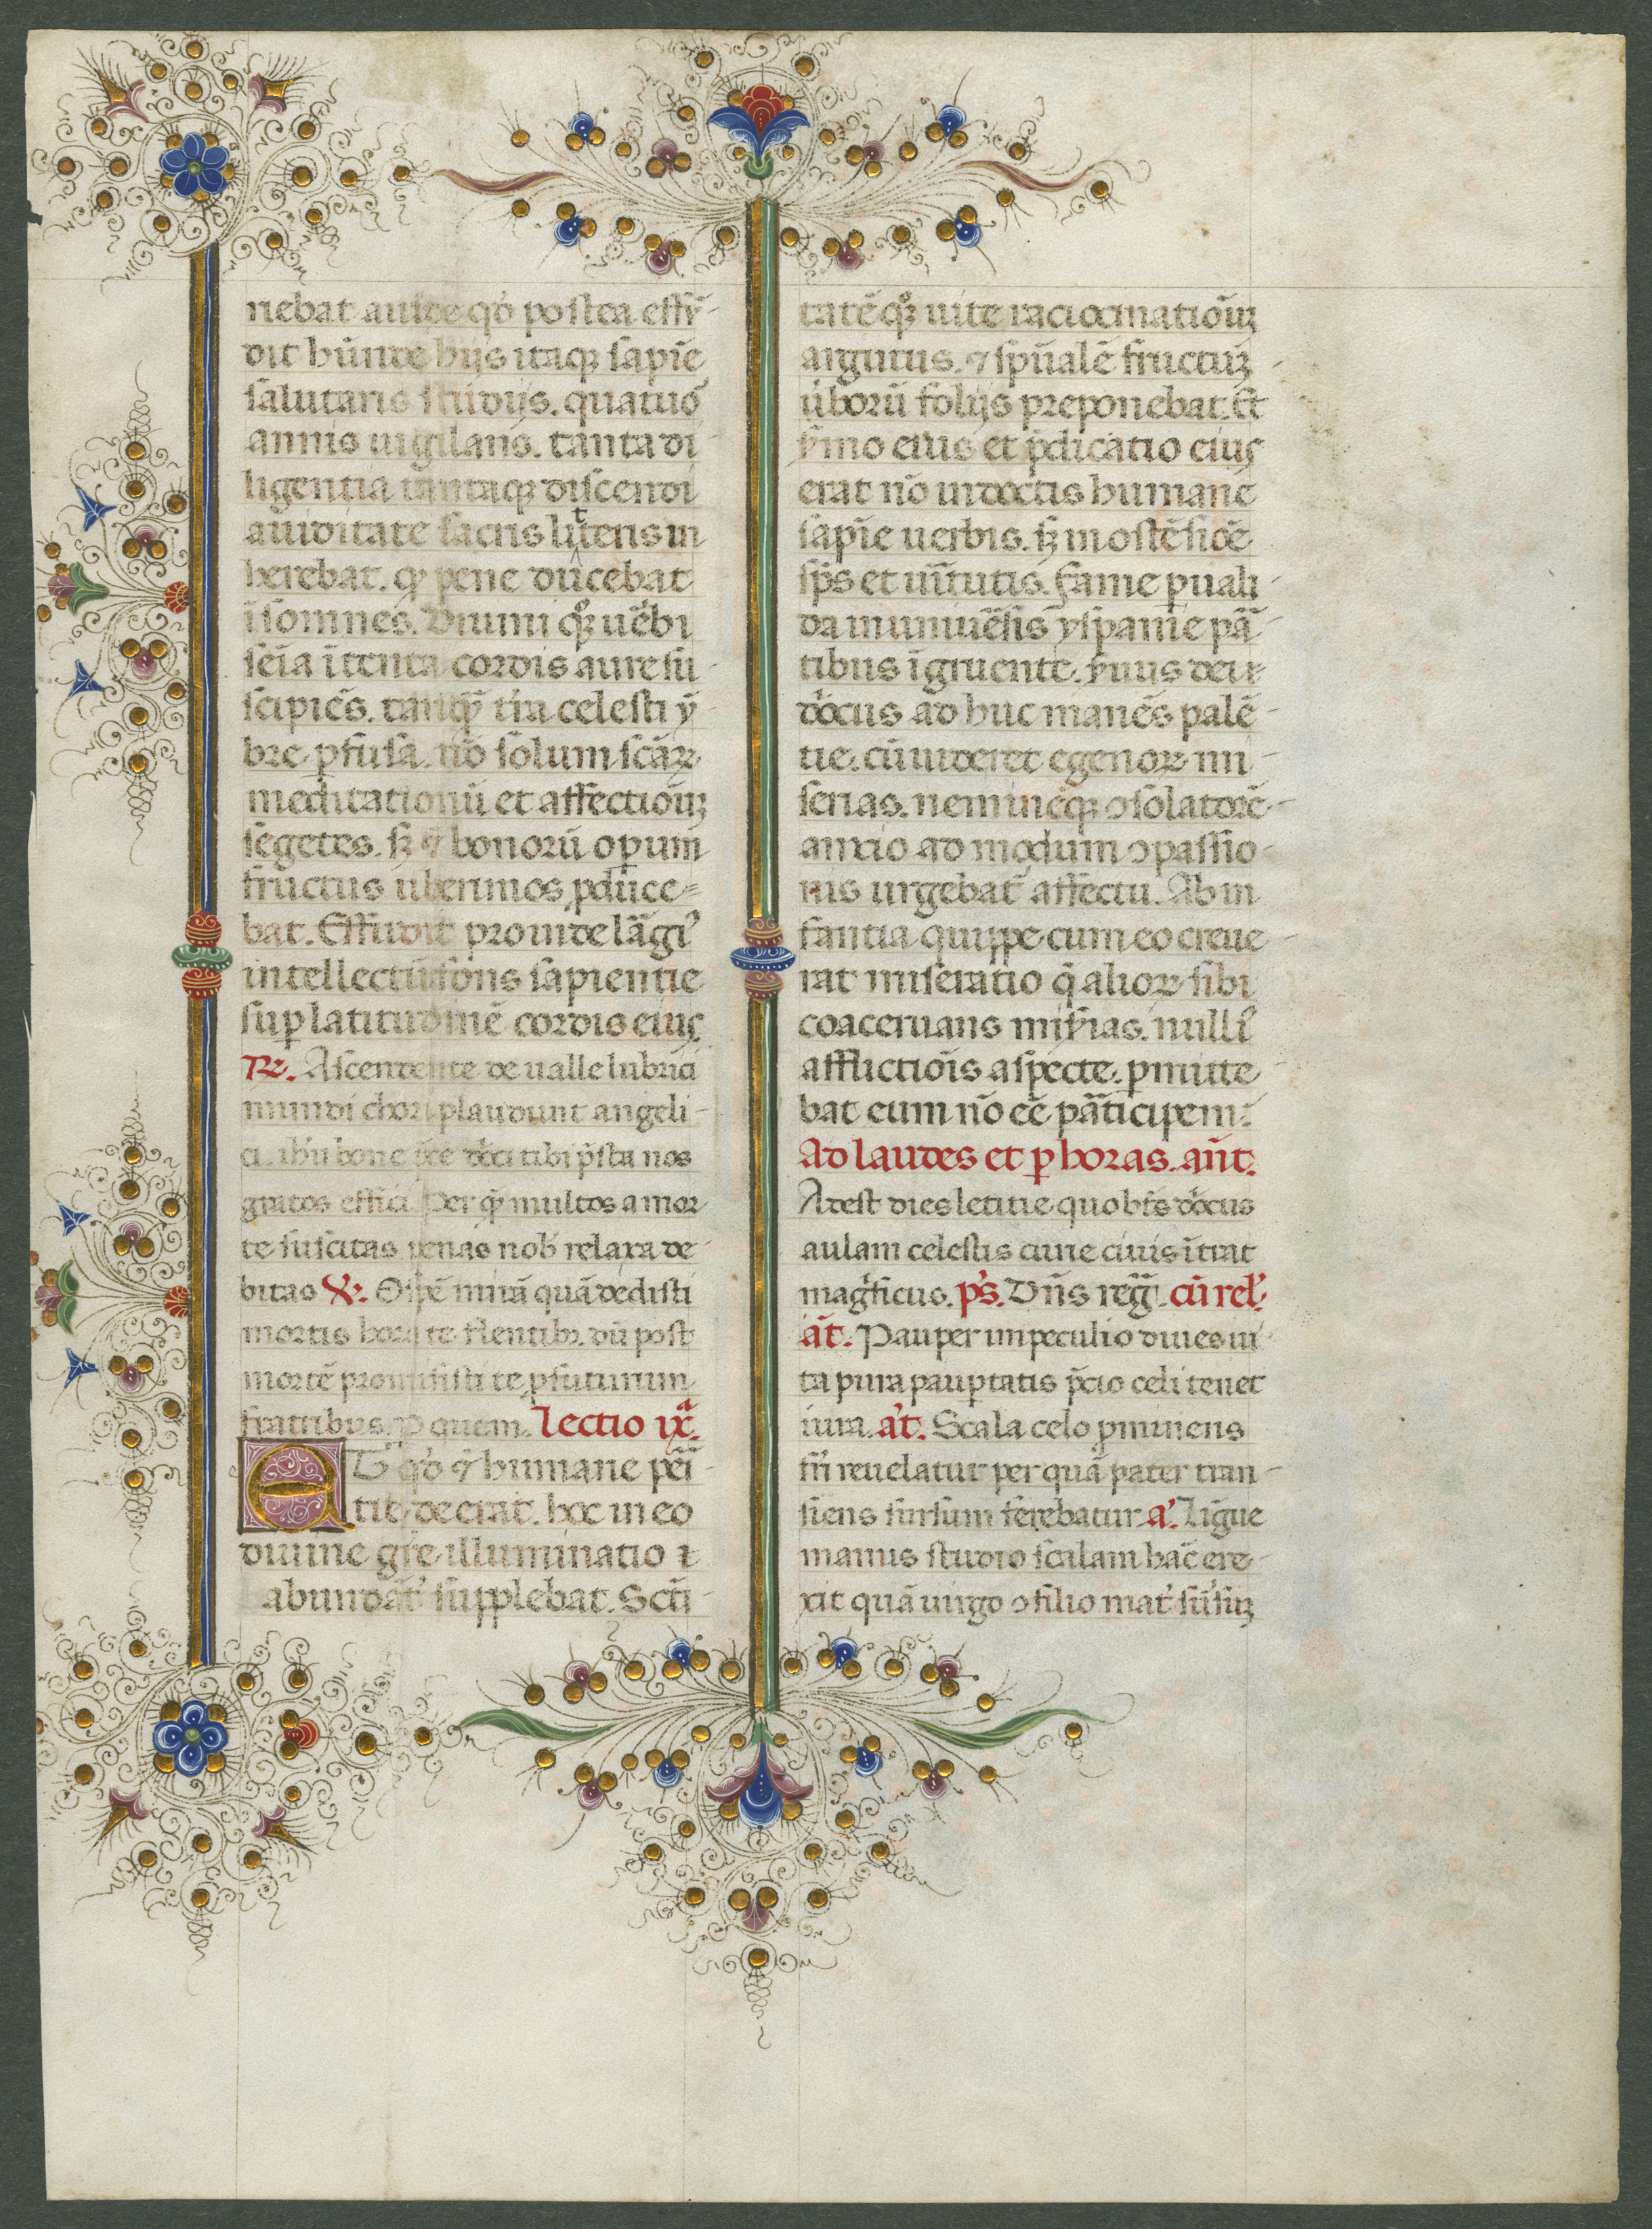 riebat auide qď postea effū-
dit hūnde hijs itaqꝫ sapīe
salutaris studijs. quatuoʳ
annis uigilans. tanta di-
ligentia tantaqꝫ discendi
auiditate sacris litteris in
herebat. qꝫ pene ducebat
īsomnes. Diuini qͦꝫ uͤbi
seīa ītenta cordis aure su-
scipiēs. tanqꝫ̄ tr̄a celesti ỹ-
bre ꝑfusa. nō solum scā̄ꝝ
meditationū et affectiōūꝫ
segetes. sꝫ ⁊ bonorū oꝑum
fructus uberrimos ꝓduce=
bat. Effudit proinde lāgiʳ
intellectū fons sapientie
suꝑ latitudinē cordis eiꝰ
℟. Ascendente de ualle lubrici
mundi chori plaudunt angeli-
ci. ihū bone pr̄e dōci tibi p̄sta nos
gratos effici. Per qꝫ̄ multos a mor
te suscitas penas nob̄ relaxa de
bitas ℣. O spē mirā quā dedisti
mortis hora te flentibꝫ. dū post
mortē promisisti te ꝓfuturum
fratribus. Ꝑ quem. Lectio ixͣ.
ET qď ⁊ humane per̄i-
tie deerat. hoc in eo
diuine gr̄e illuminatio ⁊
abundāt supplebat. Scti-
tatē qͦꝫ uite raciocinatiōūꝫ
argutus. ⁊ sp̄ualē fructūꝫ
ůborū folijs preponebat. Et
ẜmo eius et p̄dicatio eiꝰ
erat nō in doctis humane
sapīe uerbis. sꝫ in ostēsiōē
sp̄s et uīrtutis. Fame ꝑuali
da in uniuēsis yspanie pā-
tibus īgruente. ẜuus dei ⁊
dōcus ad huc manēs palē-
tie. cū uideret egenoꝝ mi-
serias. neminēqꝫ ꝯsolatorē-
anxio ad modum ꝯpassio-
nis urgebat̄ affectu. Ab in
fantia quippe cum eo creue
rat miseratio q̄ alioꝝ sibi
coaceruans mis̄ias. nulliꝰ
afflictiōis aspecte. ꝑmitte
bat eum nō eē pāticipem:
Ad laudes et ꝑ horas. an̄t.
Adest dies letitie quo bt̄s dōcus
aulam celestis curie ciuis ītrat
magnificus. pš. Dn̄s reḡ. cū relꝰ.
āt. Pauper in peculio diues ui-
ta pura pauꝑtatis p̄cio celi tenet
iura. āt. Scala celo ꝓminens
fr̄i reuelatur per quā pater tran-
siens sursum ferebatur. aʳ. Ligne
manus studio scalam hāc ere-
xit quā uirgo ꝯ filio mať sūsūꝫ